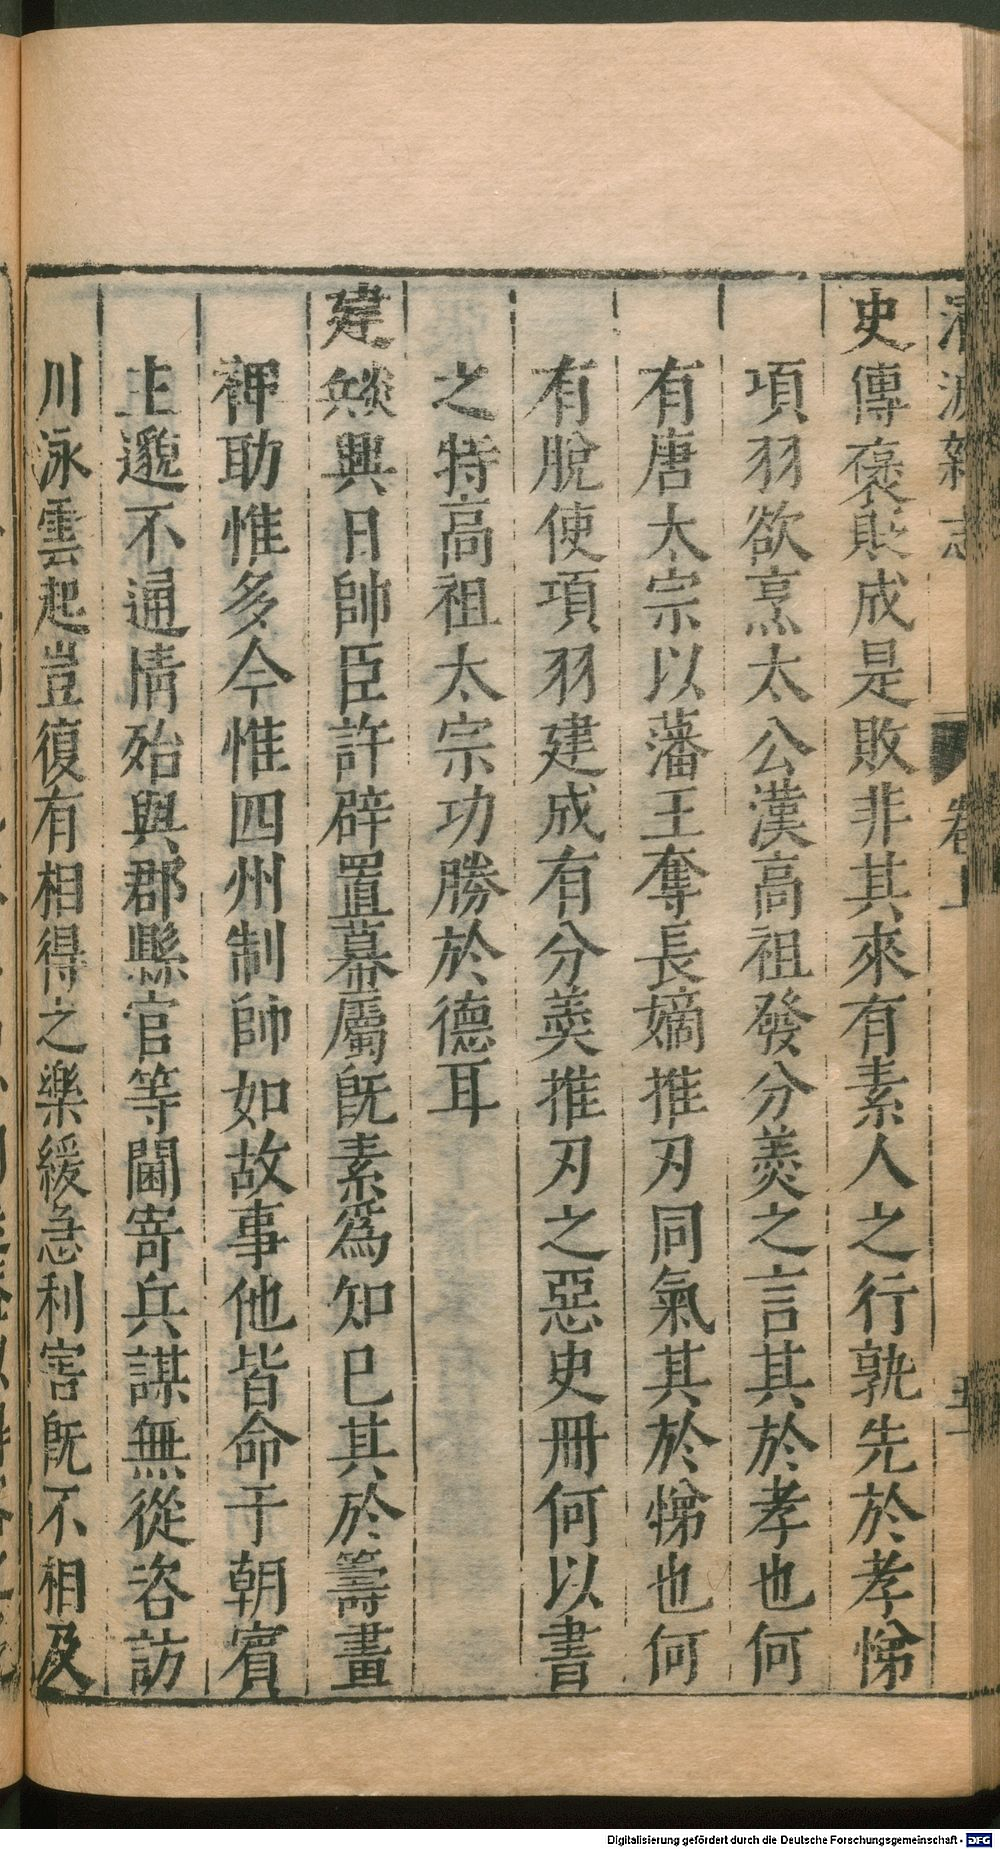 史傳褒貶成是敗非其來有素人之行孰先於孝悌
項羽欲烹太公漢高祖發分羹之言其於孝也何
有唐太宗以藩王奪長嫡推刃同氣其於悌也何
有脫使項羽建成有分羹推刃之惡史冊何以書
之特高祖太宗功勝於德耳
建燚興日帥臣許辟置幕屬旣素爲知巳其於籌畫
裨助惟多今惟四州制帥如故事他皆命于朝賓
主邈不通情殆與郡縣官等閫寄兵謀無從咨訪
川泳雲起豈復有相得之樂緩急利害旣不相及
Digitalisierung gefördert durch die Deutsche Forschungsgemeinschaft - DFG